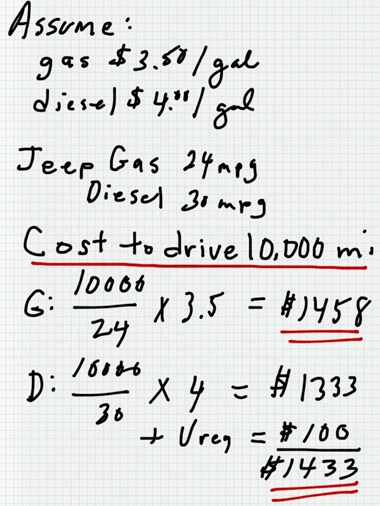 Assume:
gas $3.50/gal
diesel $4.00/gal
Jeep Gas 24mpg
Diesel 30 mpg
Cost to drive 10,000 mi
G: 10000/24 X 3.5 = $1458
D: 10000/30 X 4 = $1333
+ Ureq = $100
$1433